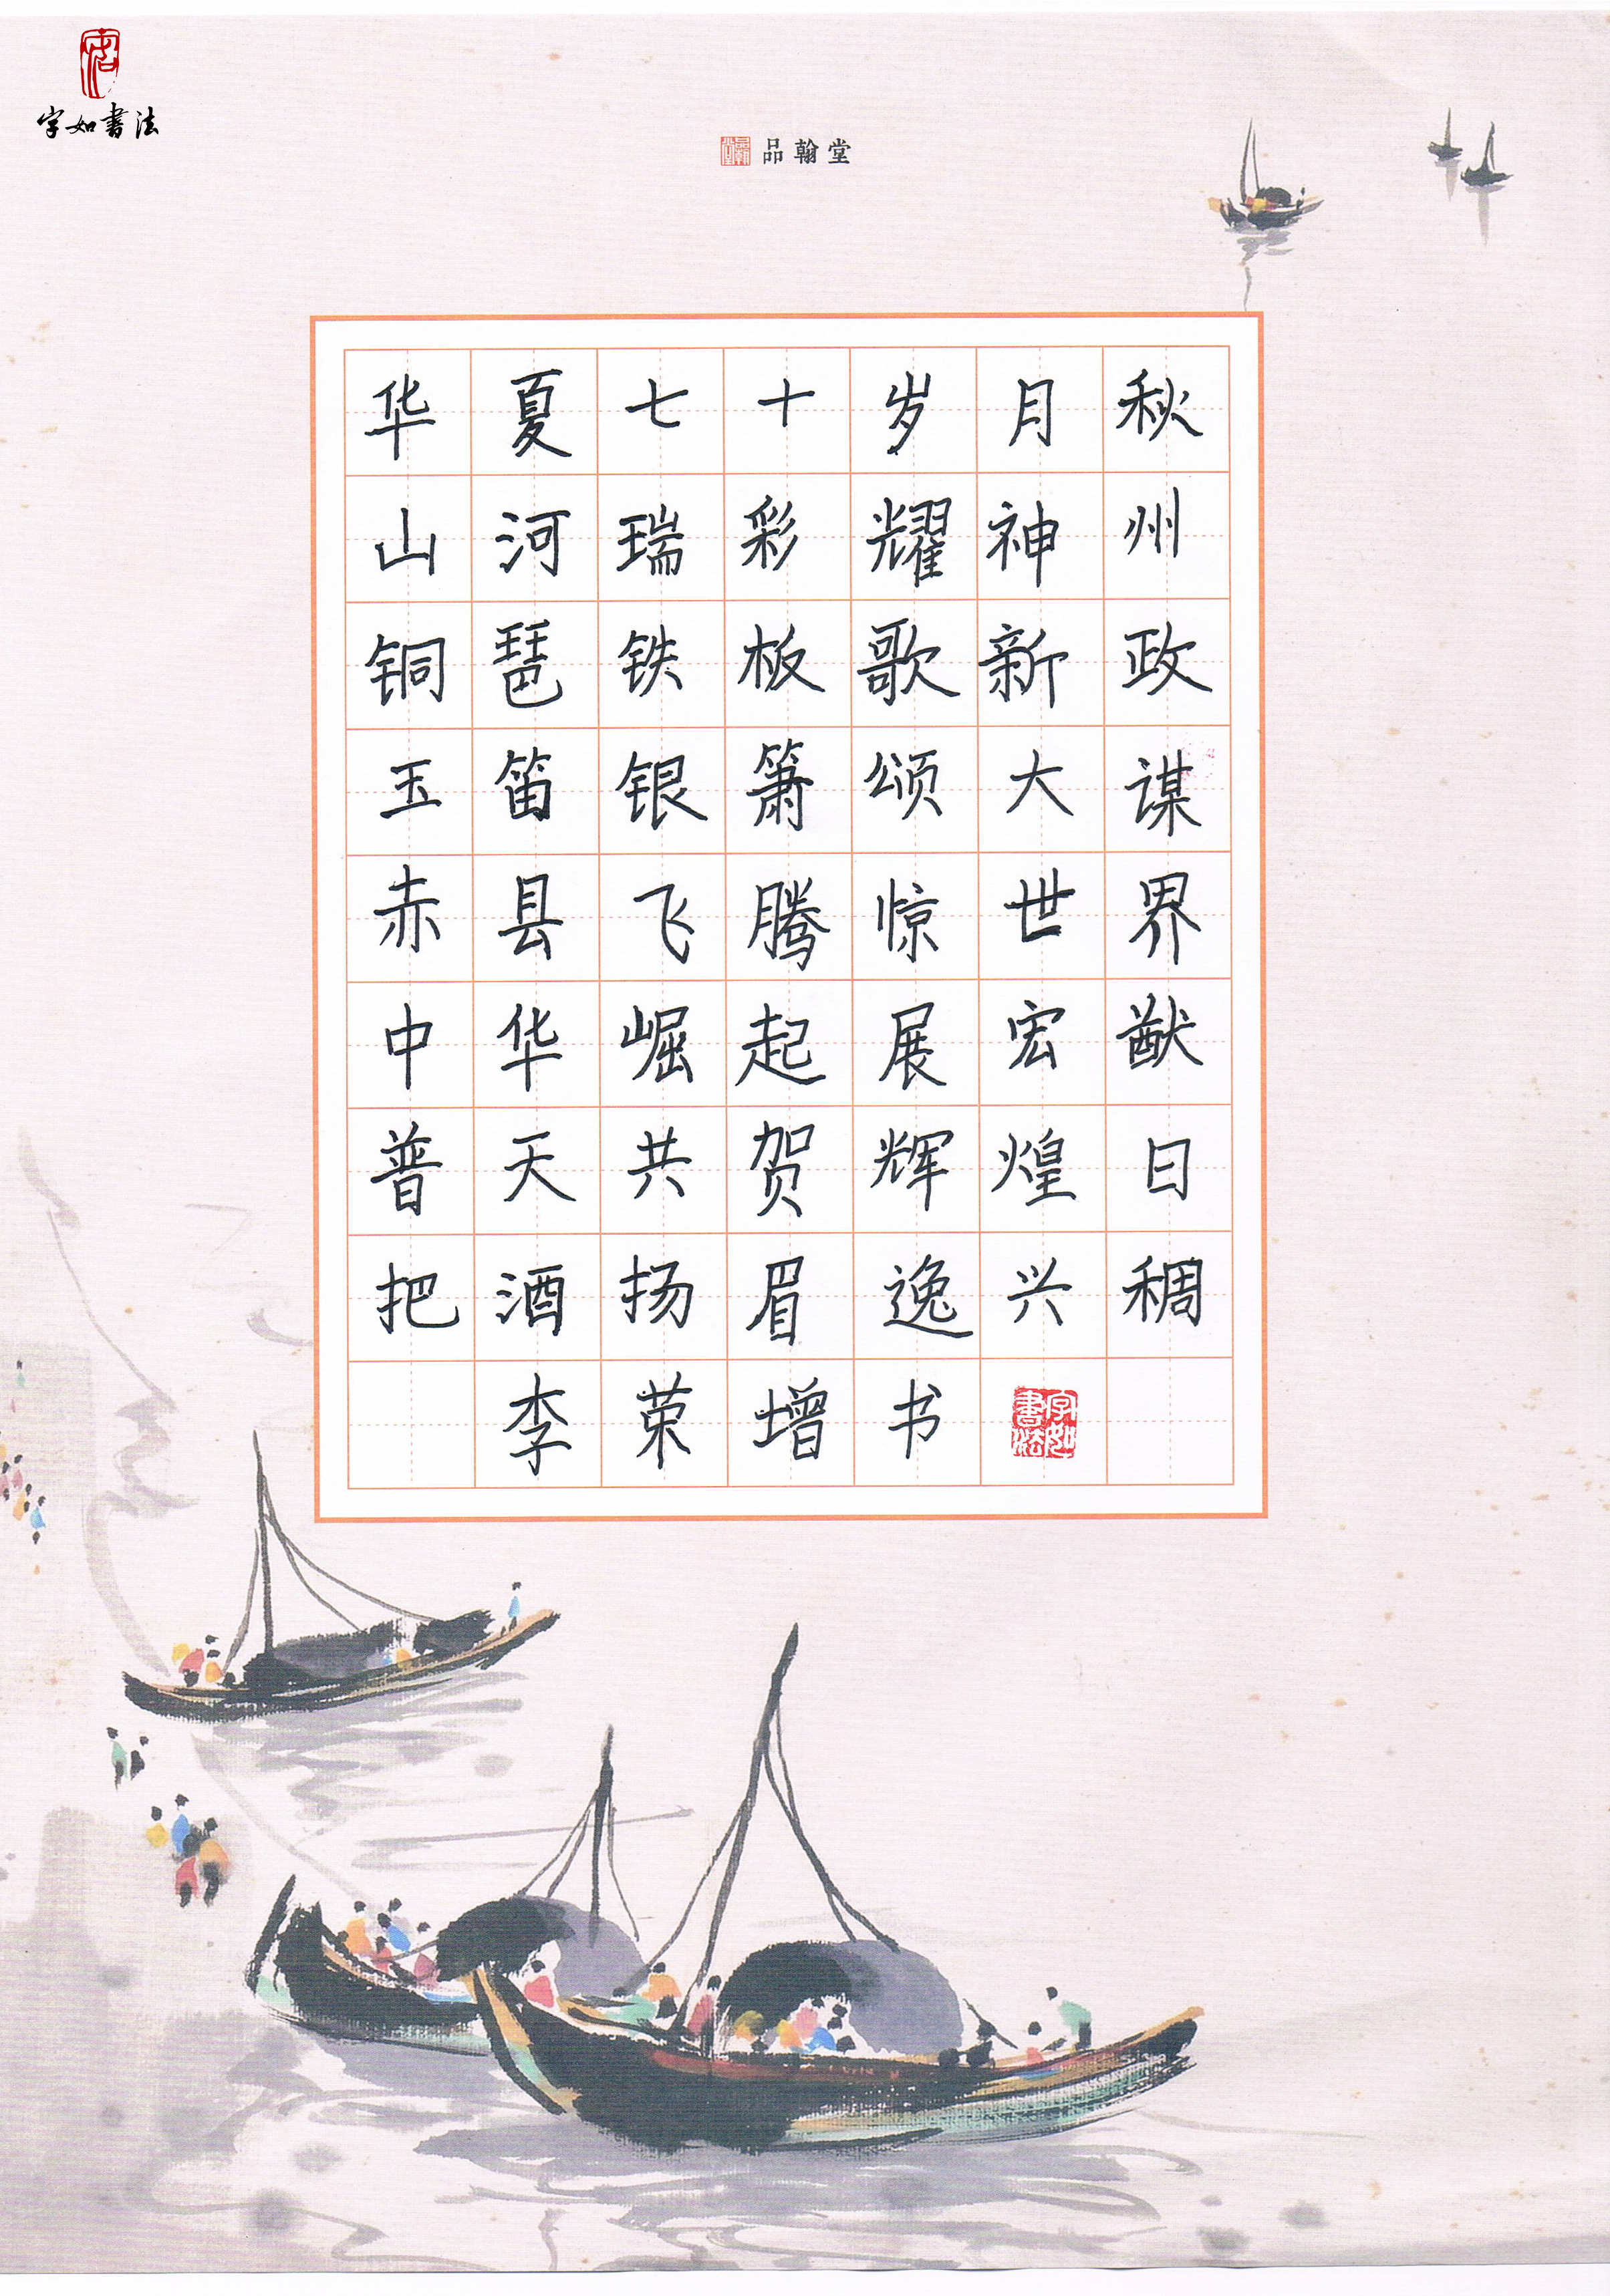 字如書法
品翰堂
华夏七十岁月秋
山河瑞彩耀神州
铜琶铁板歌新政
玉笛银箫颂大谋
赤县飞腾惊世界
中华崛起展宏猷
普天共贺辉煌日
把酒扬眉逸兴稠
李荣增书
字如書法